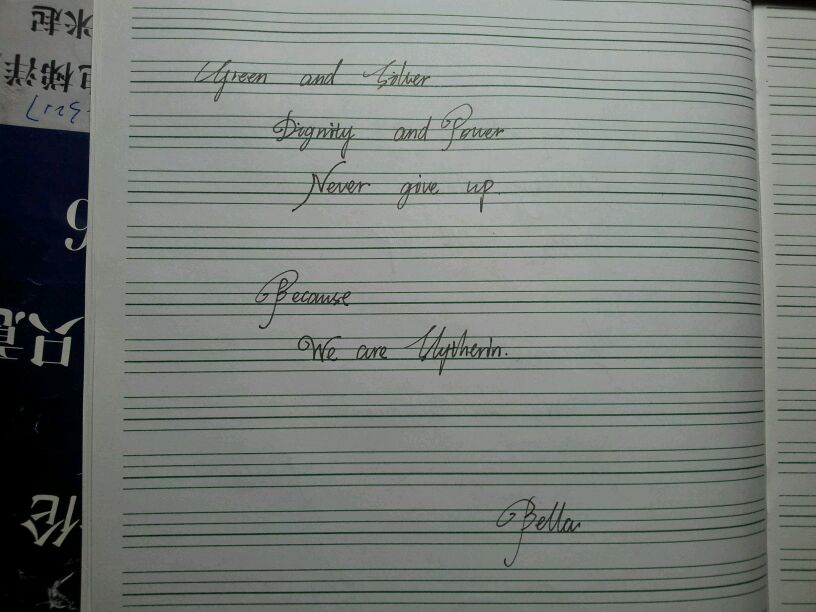 Green and Silver
Dignity and Power
Never give up.
Because
We are Slytherin.
Bella
米起
梯洋
6
只意
伦